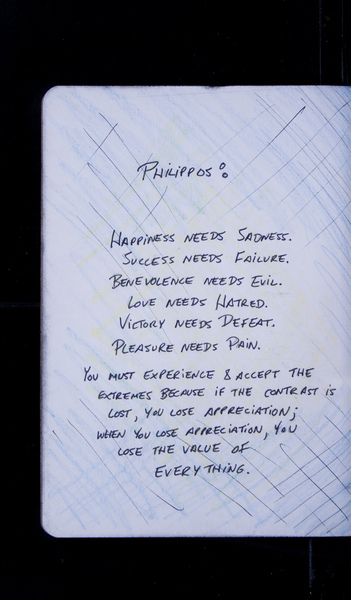 PHILIPPOS:
HAPPINESS NEEDS SADNESS.
SUCCESS NEEDS FAILURE.
BENEVOLENCE NEEDS EVIL.
LOVE NEEDS HATRED.
VICTORY NEEDS DEFEAT.
PLEASURE NEEDS PAIN.
YOU MUST EXPERIENCE & ACCEPT THE
EXTREMES BECAUSE IF THE CONTRAST IS
LOST, YOU LOSE APPRECIATION;
WHEN YOU LOSE APPRECIATION, YOU
LOSE THE VALUE OF
EVERYTHING.